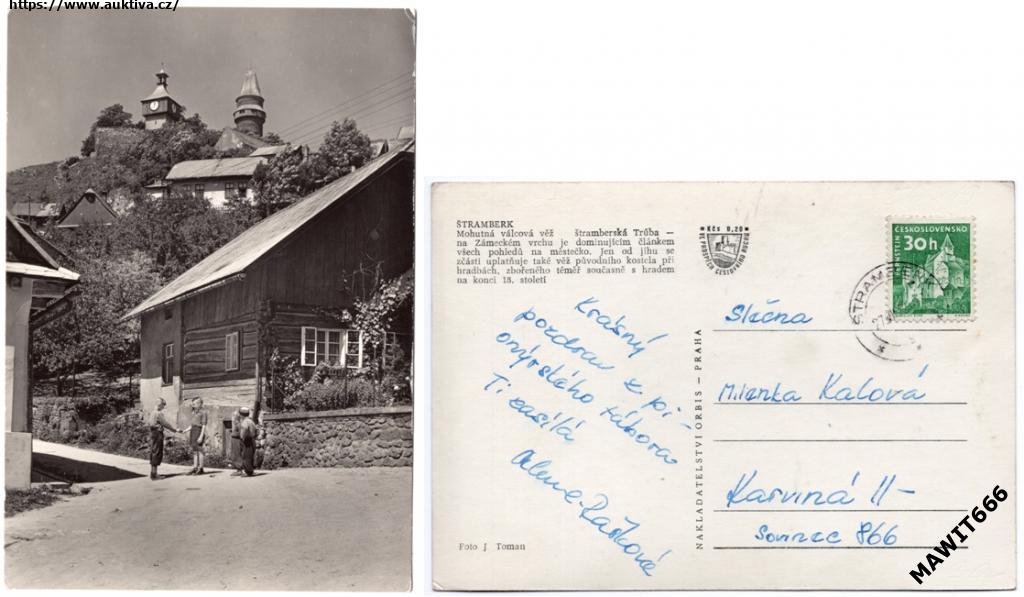 https://www.auktiva.cz/
ŠTRAMBERK
Mohutná válcová věž štramberská Trůba —
na Zámeckém vrchu je dominujícím článkem
všech pohledů na městečko. Jen od jihu se
zčásti uplatňuje také věž původního kostela při
hradbách, zbořeného téměř současně s hradem
na konci 18. století
Kčs 0,20
ČESKOSLOVENSKO
30h
ŠTRAMBERK
Krásný
pozdrav z pi-
onýrského tábora
Ti zasílá
Alena Rašková
NAKLADATELSTVÍ ORBIS - PRAHA
Slečna
Milenka Kalová
Karviná II-
Sovinec 866
Foto J. Toman
MAWIT666